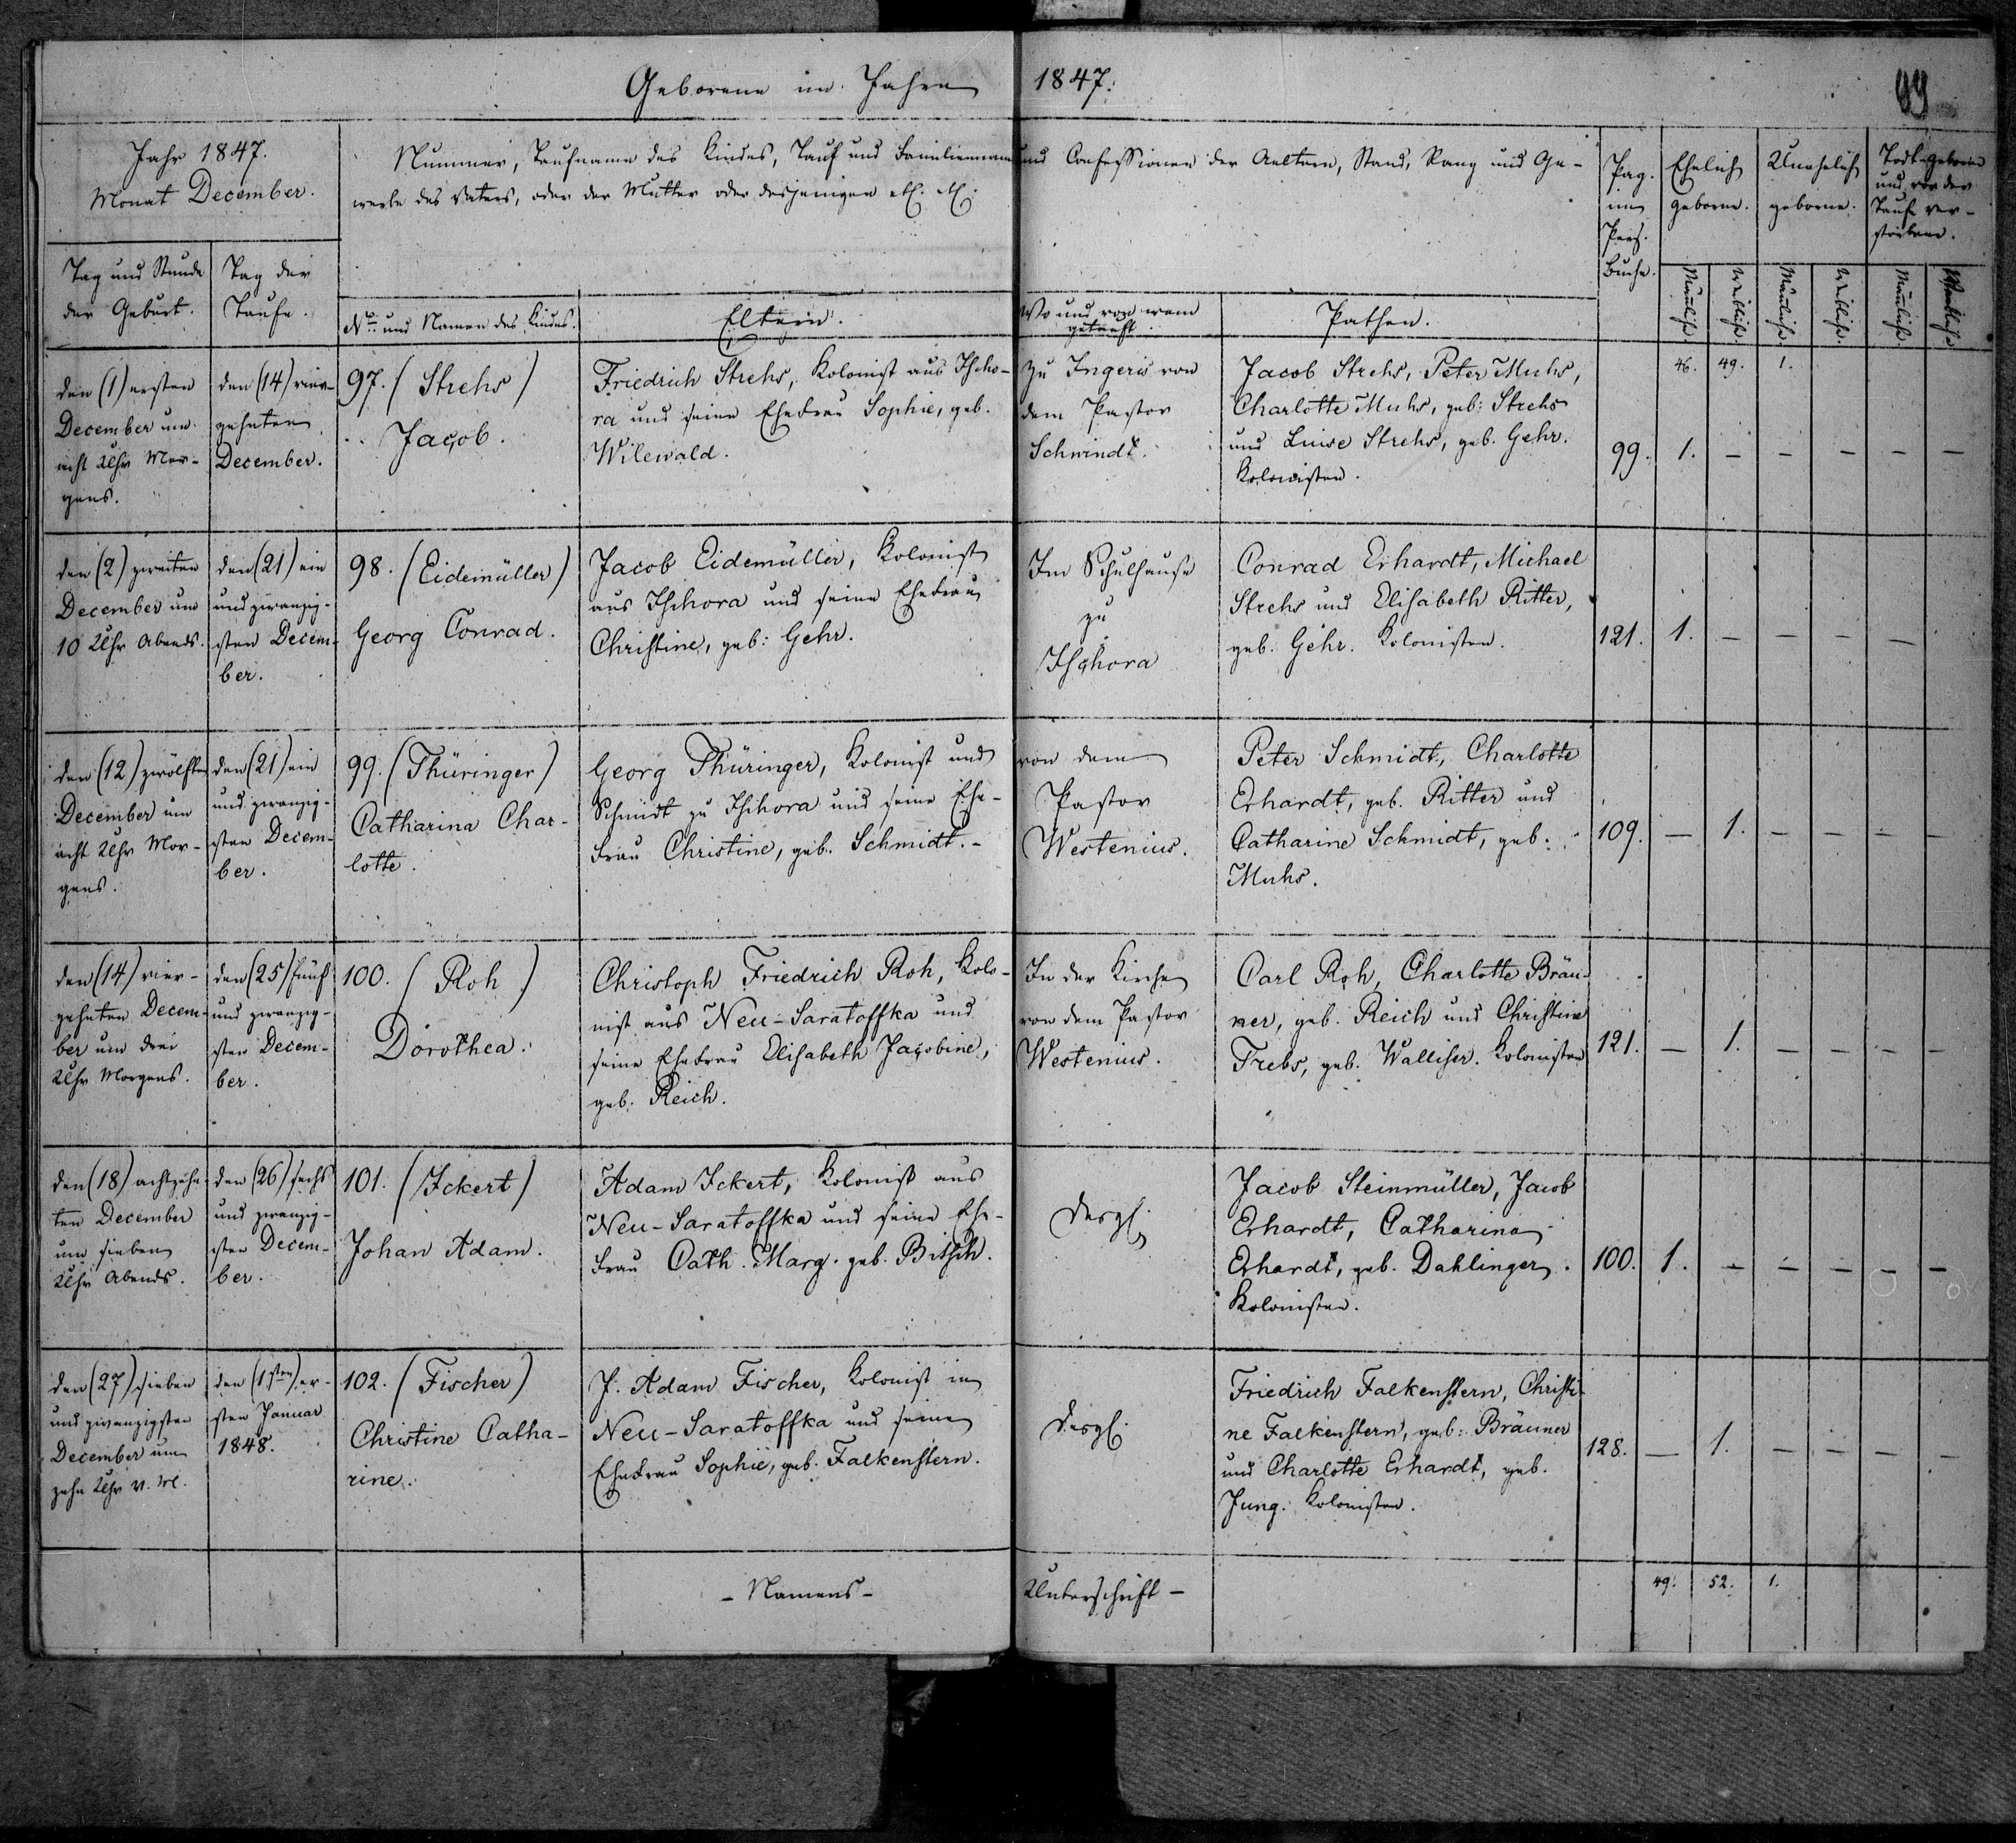 Geborene im Jahre 1847.
99
Jahr 1847.
Monat December.
Nummer, Taufname des Kindes, Tauf und Familienname und Confessionen der Aeltern, Stand, Rang und Ge-
werbe des Vaters, oder der Mutter oder desjenigen etc. etc.
Pag.
im
Pers.
Buche.
Ehelich
geborene.
Unehelich
geborene.
Todt-geborene
und vor der
Taufe ver-
storbene.
Tag und Stunde
der Geburt.
Tag der
Taufe.
No. und Namen des Kindes.
Eltern.
Wo und von wem
getauft.
Pathen.
Männlich.
Weiblich.
Männlich.
Weiblich.
Männlich.
Weiblich.
46. 49. 1.
den (1) ersten
December um
acht Uhr Mor-
gens.
den (14) vier-
zehnten
December.
97. (Strehs)
Jacob.
Friedrich Strehs, Kolonist aus Ischo-
ra und seine Ehefrau Sophie, geb.
Wilewald.
Zu Ingeris von
dem Pastor
Schwindt.
Jacob Strehs, Peter Muhs,
Charlotte Muhs, geb: Strehs
und Luise Strehs, geb. Gehr.
Kolonisten.
99. 1. – – – – –
den (2) zweiten
December um
10 Uhr Abends.
den (21) ein
und zwanzig-
sten Decem-
ber.
98. (Eidemüller)
Georg Conrad.
Jacob Eidemüller, Kolonist
aus Ischora und seine Ehefrau
Christine, geb: Gehr.
Im Schulhause
zu
Ischora
Conrad Erhardt, Michael
Strehs und Elisabeth Ritter,
geb. Gehr. Kolonisten.
121. 1. – – – –
den (12) zwölften
December um
acht Uhr Mor-
gens.
den (21) ein
und zwanzig-
sten Decem-
ber.
99. (Thüringer)
Catharina Char-
lotte.
Georg Thüringer, Kolonist und
Schmidt zu Ischora und seine Ehe-
frau Christine, geb. Schmidt. -
von dem
Pastor
Westenius.
Peter Schmidt, Charlotte
Erhardt, geb. Ritter und
Catharine Schmidt, geb.
Muhs.
109. – 1. – – – –
den (14) vier-
zehnten Decem-
ber um drei
Uhr Morgens.
den (25) fünf
und zwanzig-
sten Decem-
ber.
100. (Roh)
Dorothea.
Christoph Friedrich Roh, Kolo-
nist aus Neu-Saratoffka und
seine Ehefrau Elisabeth Jacobine,
geb. Reich.
In der Kirche
von dem Pastor
Westenius.
Carl Roh, Charlotte Bräu-
ner, geb. Reich und Christine
Trebs, geb. Walliser. Kolonisten
121. – 1. – – – –
den (18) achtzehn-
ten December
um sieben
Uhr Abends.
den (26) sechs
und zwanzig-
sten Decem-
ber.
101. (Ickert)
Johan Adam.
Adam Ickert, Kolonist aus
Neu-Saratoffka und seine Ehe-
frau Cath. Marg. geb. Bitsch.
desgl.
Jacob Steinmüller, Jacob
Erhardt, Catharina
Erhardt, geb. Dahlinger.
Kolonisten.
100. 1. – – – – –
den (27) sieben
und zwanzigsten
December um
zehn Uhr v. M.
den (1sten) er-
sten Januar
1848.
102. (Fischer)
Christine Catha-
rine.
J. Adam Fischer, Kolonist in
Neu-Saratoffka und seine
Ehefrau Sophie, geb. Falkenstern.
desgl.
Friedrich Falkenstern, Christi-
ne Falkenstern, geb: Bräuner
und Charlotte Erhardt, geb.
Jung. Kolonisten.
128. – 1. – – – –
- Namens-
Unterschrift -
49. 52. 1.